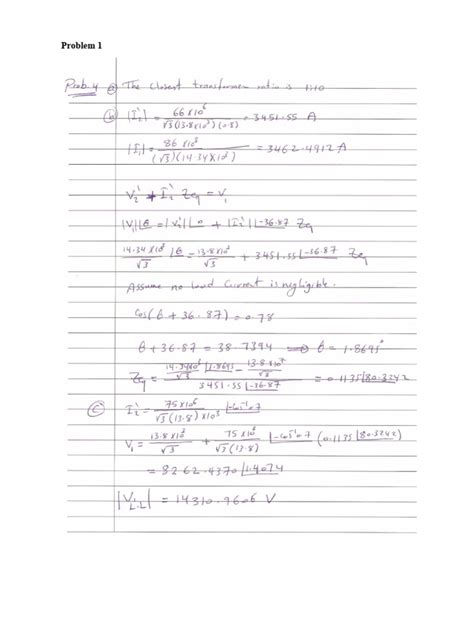 Problem 1
Prob. 4 (a) The closest transformer ratio is 1:10
(b) |I₂'| = 66 x10⁶ / √3 (13.8 x10³)(0.8) = 3451.55 A
|I₁| = 86 x10⁶ / (√3)(14.34 x10³) = 3462.4912 A
V₂' + I₂' Zeq = V₁
|V₁| ∠θ = |V₂'| ∠0 + |I₂'| ∠-36.87 Zeq
14.34 x10³ / √3 ∠θ = 13.8 x10³ / √3 + 3451.55 ∠-36.87 Zeq
Assume no load current is negligible.
Cos(θ + 36.87) = 0.78
θ + 36.87 = 38.7394 ⟹ θ = 1.8695°
Zeq = (14.34x10³ / √3 ∠1.8695 - 13.8 x10³ / √3) / 3451.55 ∠-36.87 = 0.1135 ∠80.3242
(c) I₂' = 75 x10⁶ / √3 (13.8) x10³ ∠-cos⁻¹0.7
V₁ = 13.8 x10³ / √3 + 75 x10³ / √3 (13.8) ∠-cos⁻¹0.7 (0.1135 ∠80.3242
= 8262.4370 ∠1.4074
|V L.L| = 14310.9606 V